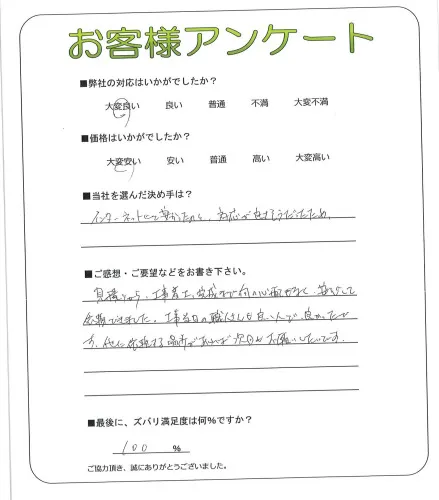 お客様アンケート
■弊社の対応はいかがでしたか？
大変良い 良い 普通 不満 大変不満
■価格はいかがでしたか？
大変安い 安い 普通 高い 大変高い
■当社を選んだ決め手は？
インターネットにて 対応が良さそうだったため、
■ご感想・ご要望などをお書き下さい。
見積りから、工事着工、完成まで何の心配もなく、安心して
依頼できました。工事当日の職人さんも良い人で、良かったで
す。他に依頼する箇所があれば次回もお願いしたいです。
■最後に、ズバリ満足度は何％ですか？
100 ％
ご協力頂き、誠にありがとうございました。